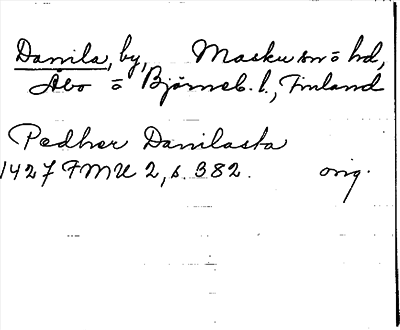 Danila, by, Masku sn o hd,
Åbo o Björneb. l., Finland
Pedher Danilasta
1427 FMU 2, s. 382. orig.